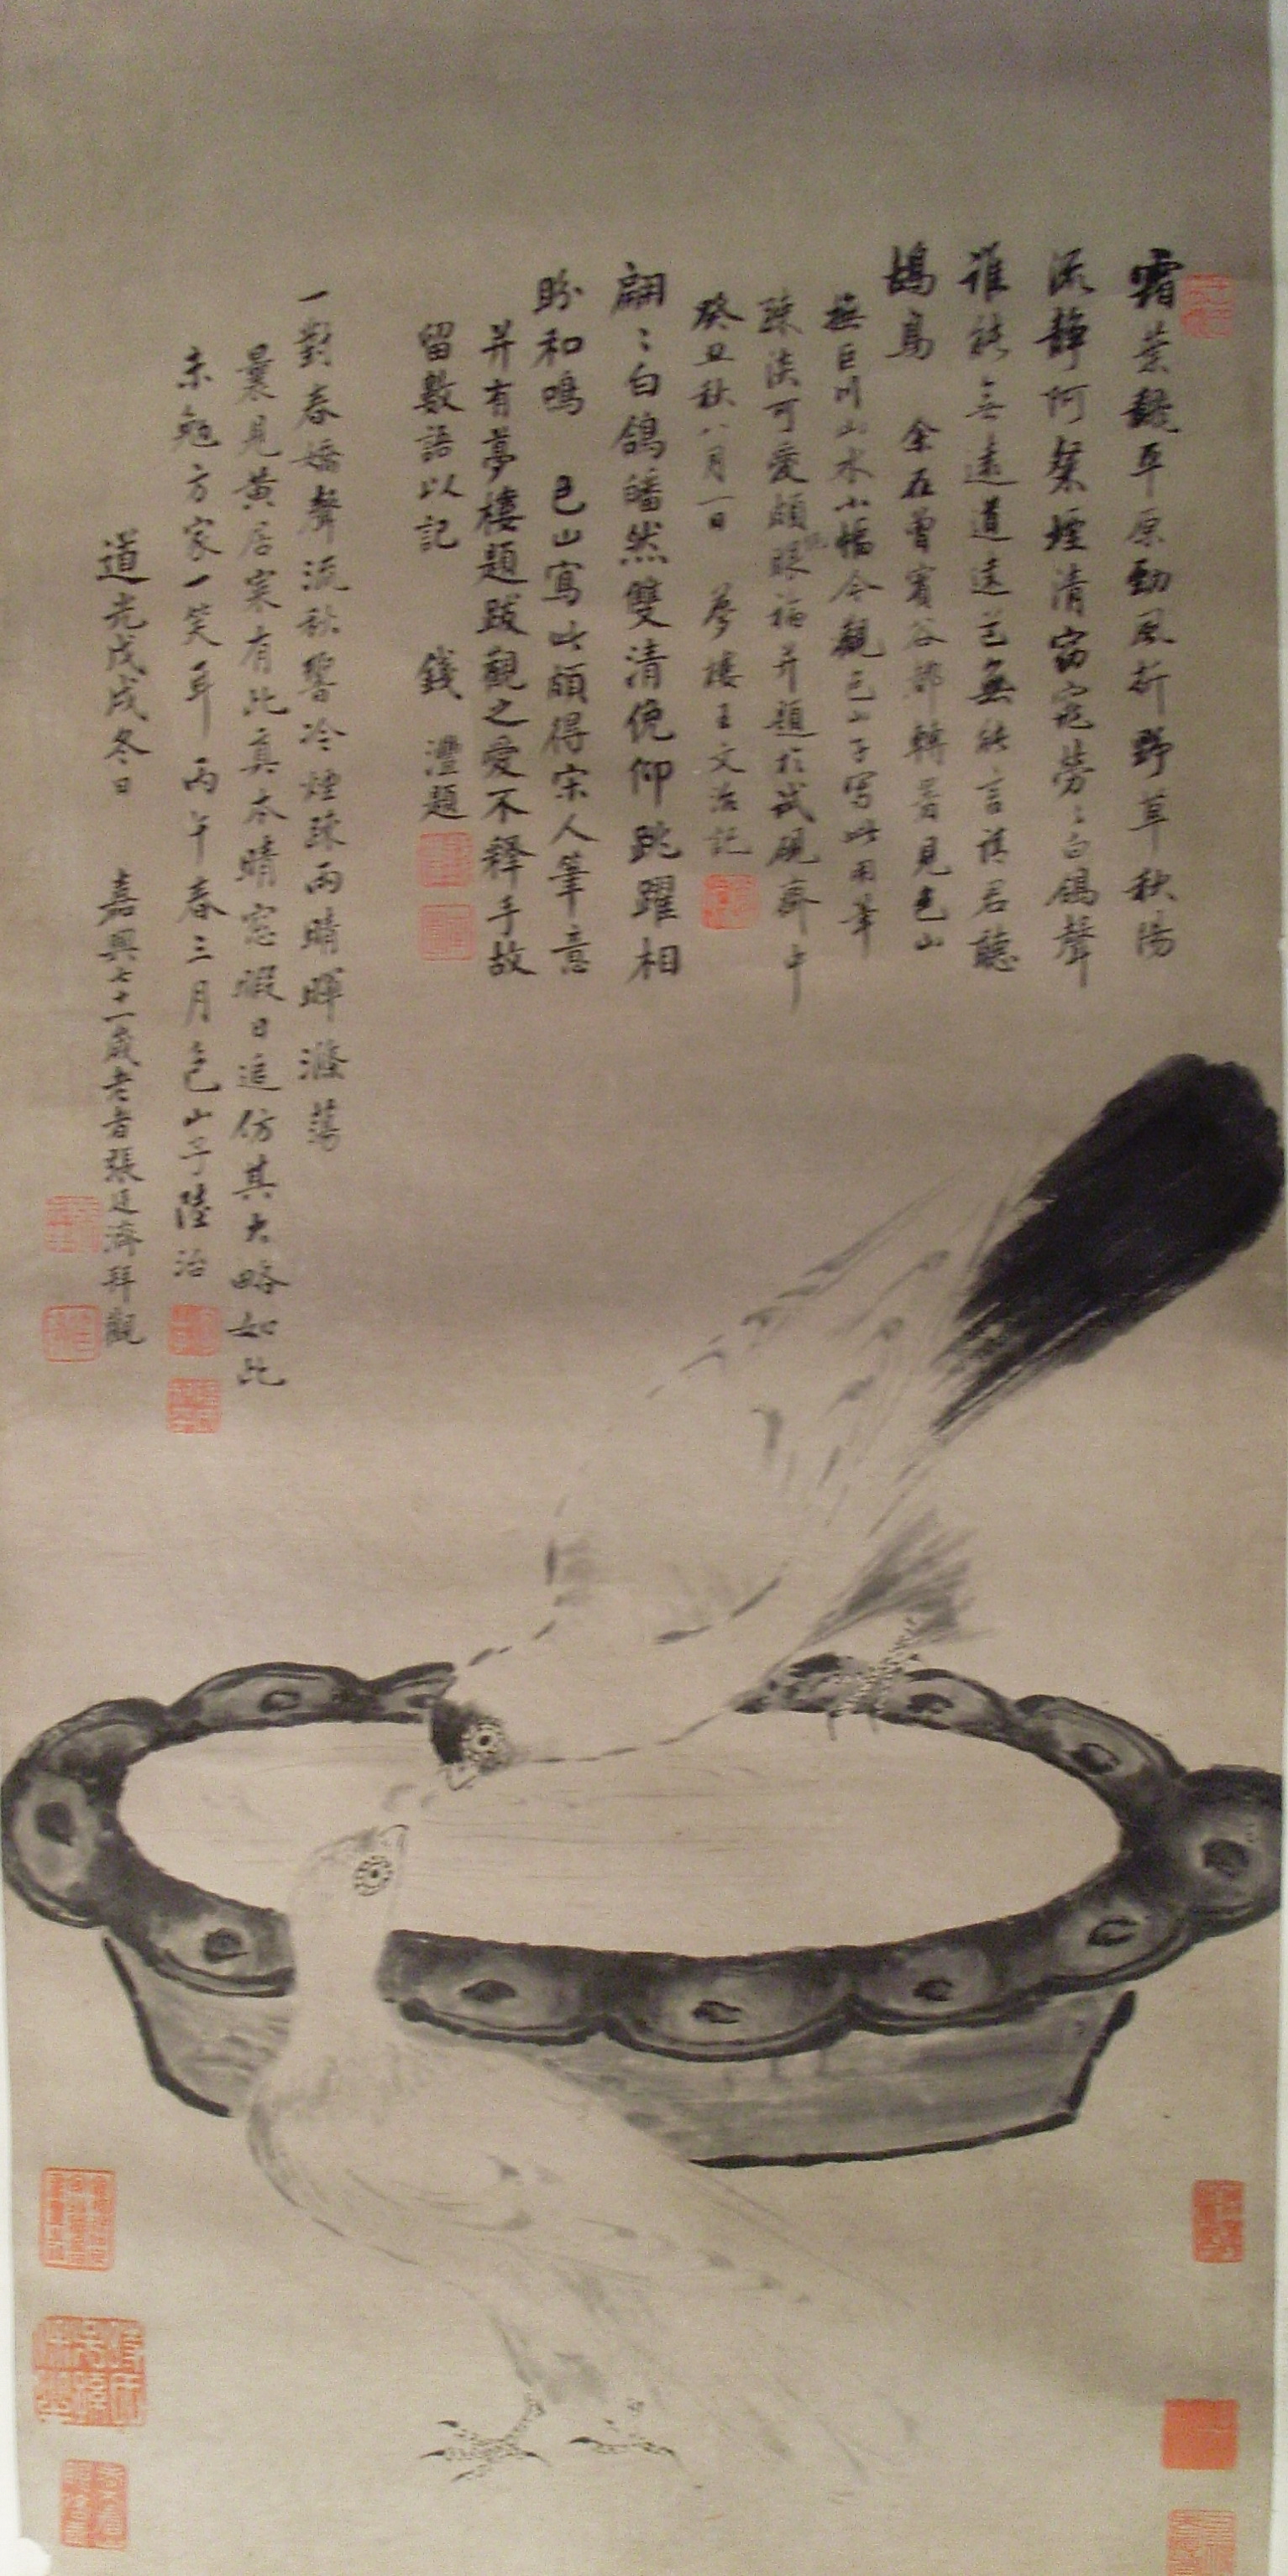 霜葉巍平原勁風折野草秋陽
派靜何粲煙清富寇勞〻白鴿聲
誰能無遠道遠芒無能言請君聽
鴣鳥 余在曾賓谷都轉署見包山
橅巨川山水小幅今觀包山子寫此用筆
疎淡可愛頗眼福并題於試硯齋中
癸丑秋八月一日 夢樓王文治記
翩〻白鴿皤然雙清俛仰跳躍相
盼和鳴 包山寫此頗得宋人筆意
并有夢樓題跋觀之愛不釋手故
留數語以記 錢灃題
一對春嬌聲流秋響冷煙疎雨晴暉澹蕩
曩見黃居寀有此真本晴窓暇日追仿其大略如此
未勉方家一笑耳 丙午春三月包山子陸治
道光戊戌冬日 嘉興七十一歲老者張廷濟拜觀